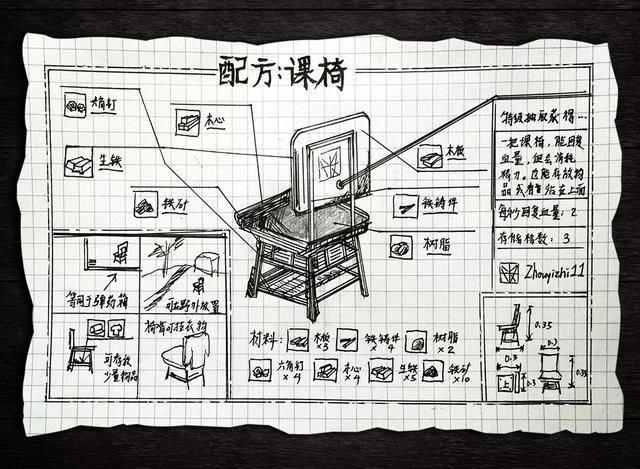 配方:课椅
六角钉
木心
生铁
木板
铁矿
铁铸件
树脂
特级抽取获得…
一把课椅,能回复
血量,但会消耗
精力。也能存放物
品或者自
每秒回复血量:2
存储格数:3
Zhouyizhi11
等同于弹药箱
可在野外放置
可存放
少量物品
椅背可挂衣物
材料:
木板
×3
铁铸件
×4
树脂
×2
六角钉
×4
木心
×4
生铁
×5
铁矿
×10
0.35
0.3
0.3
上
0.3
0.35